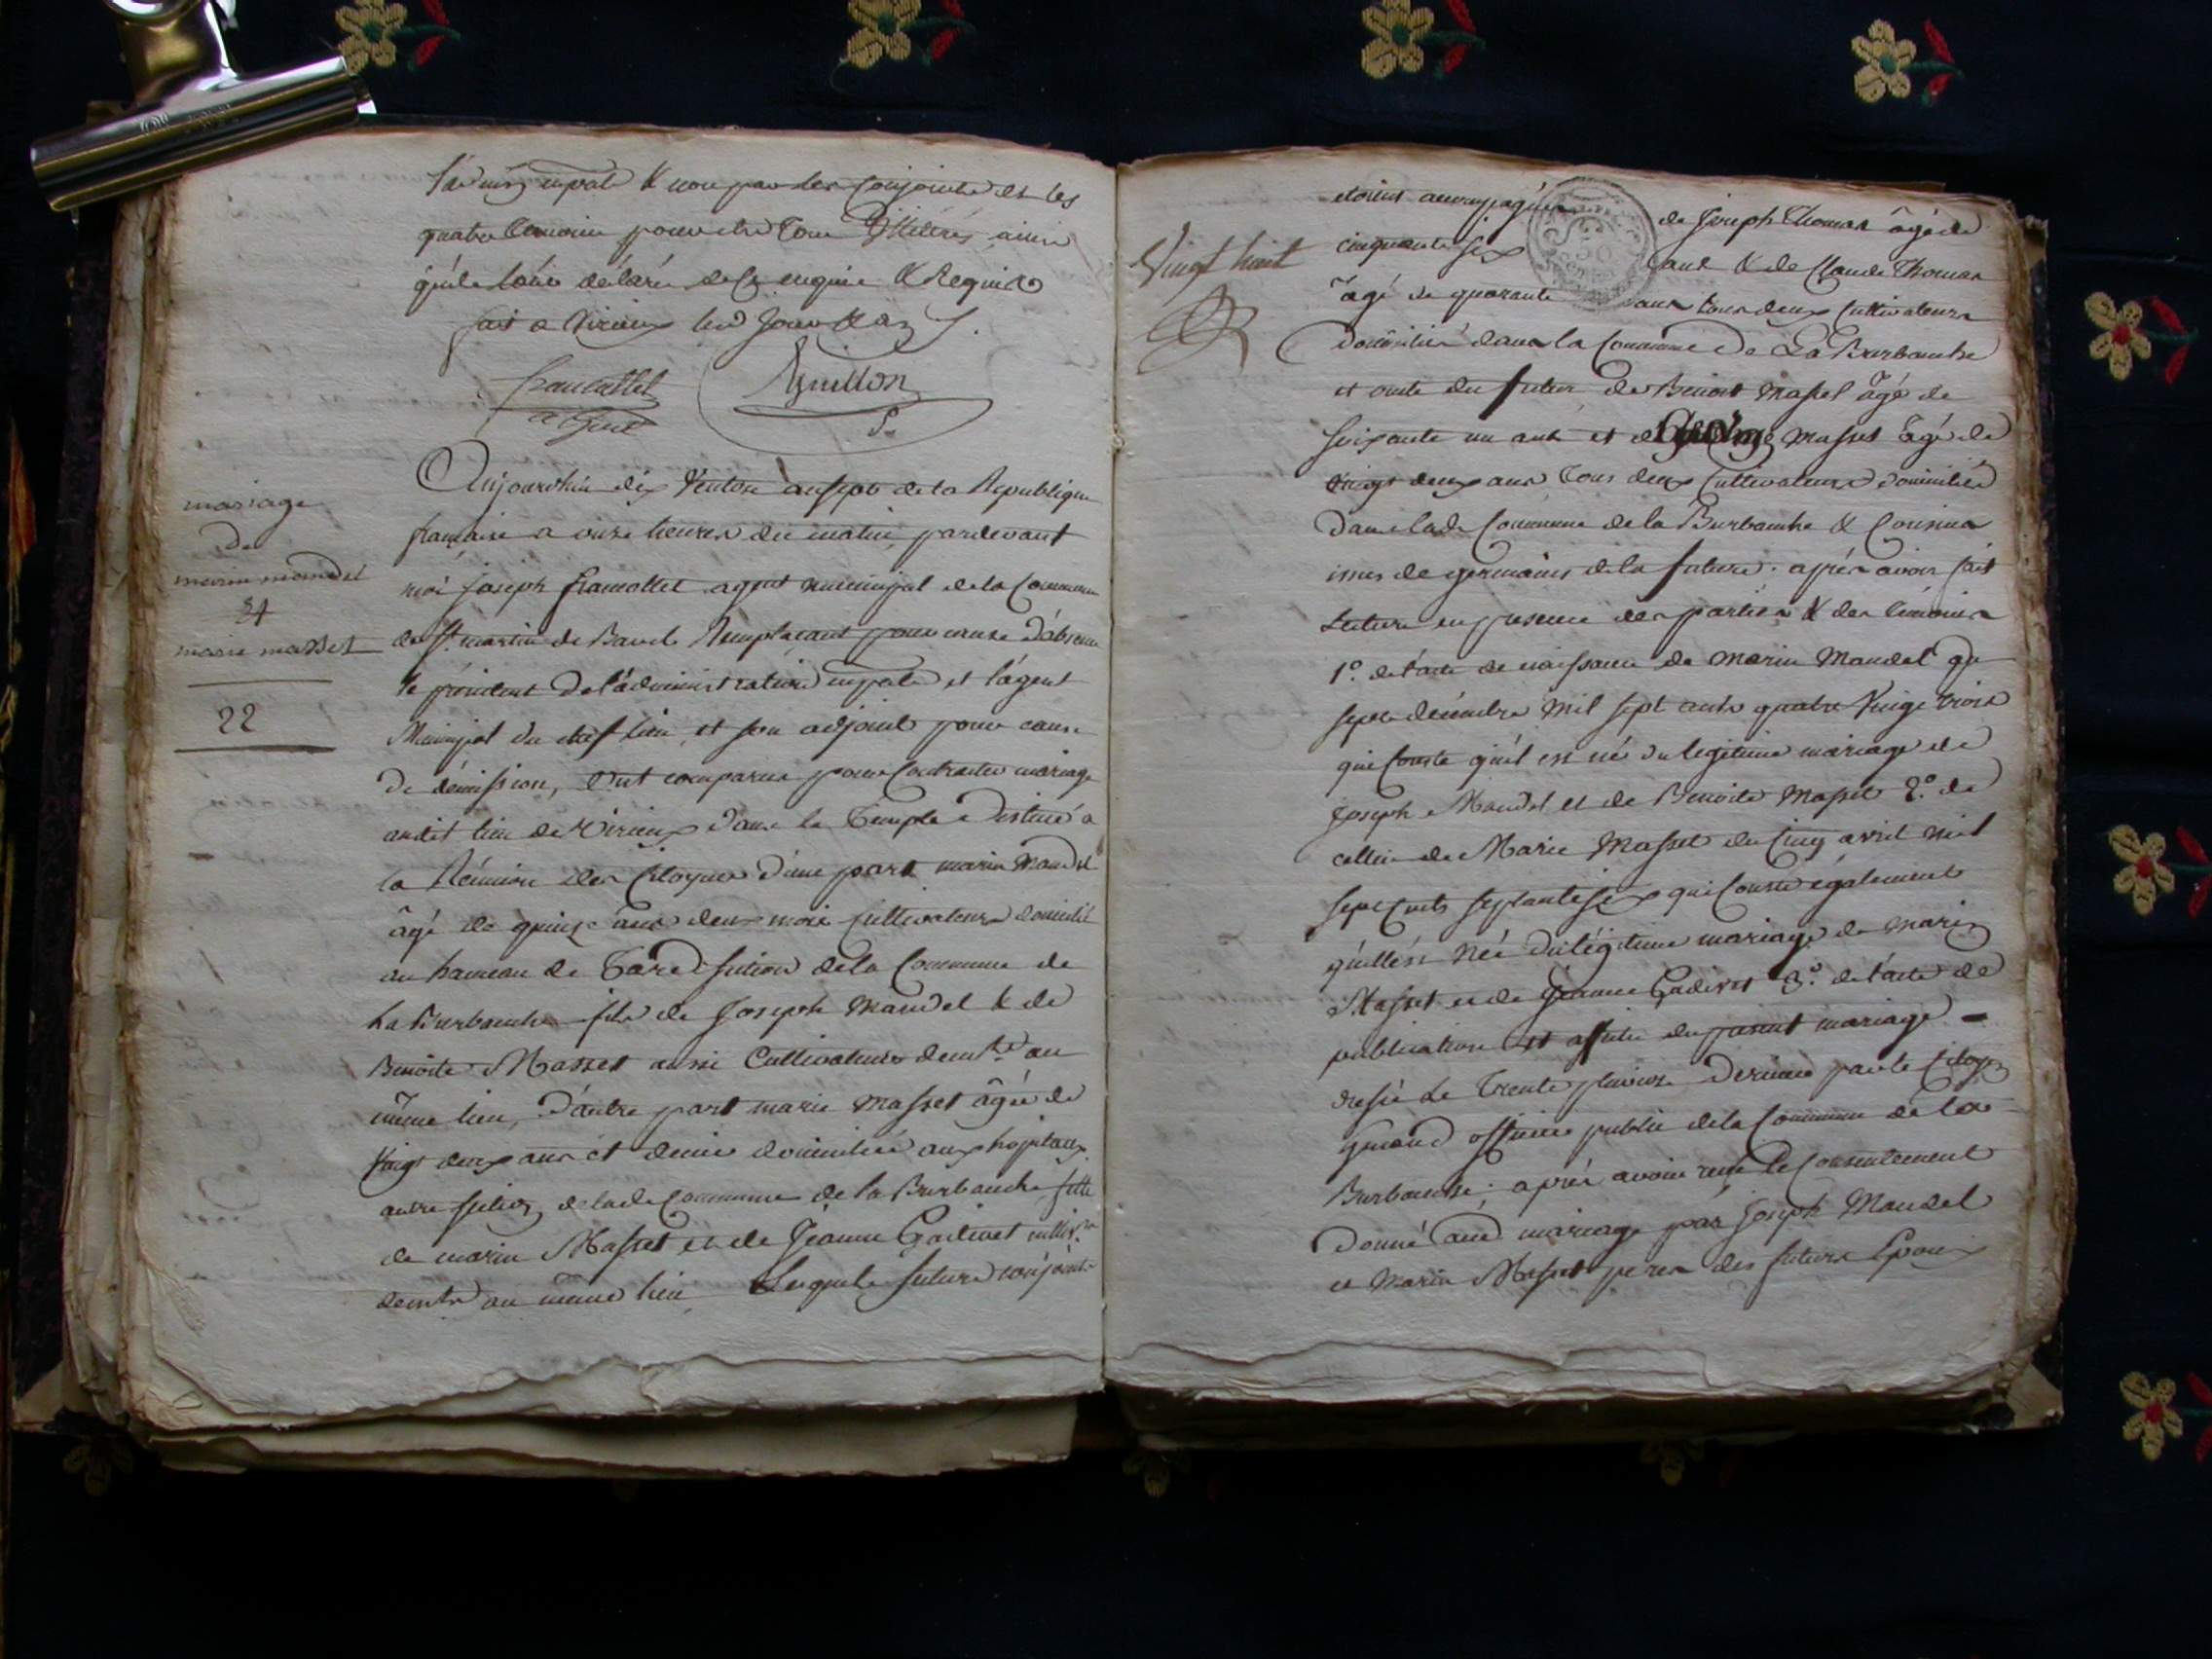 l'adm.on mpale & non par les conjoints et les
quatre temoins pour etre tous illiterés ainsi
qu'ils l'ont déclaré de ce enquis & Requis
fait a Virieux led jour & an
francallet
agent
Guillon
S.
mariage
De
marin mandel
et
marie masset
22
Aujourdhui dix Ventose an sept de la Republique
française a onze heures du matin, pardevant
moi joseph francallet agent municipal de la Commune
de St. martin de Bavel Remplacant pour cause d'absence
le président de l'administration mpale et l'agent
Municipal du chef lieu, et son adjoint pour cause
de démission, sont comparus pour Contracter mariage
audit lieu de Virieux dans le Temple Destiné a
la Réunion des Citoyens d'une part marin Mandel
âgé de quinze ans deux mois Cultivateur domicilié
au hameau de section de la Commune de
La Burbanche fils de Joseph Mandel & de
Benoite Masset aussi Cultivateurs demts au
même lieu, D'autre part marie Masset âgée de
Vingt deux ans et demie domiciliée aux hopitaux
autre section de lade Commune de la Burbanche fille
de marin Masset et de Jeanne Gadivet cultivrs
demts au même lieu Lesquels futurs conjoints
Vingt huit
etoient accompagnés de Joseph Thomas âgé de
cinquante six ans & de Claude Thomas
âgé de quarante ans tous deux Cultivateurs
Domiciliés dans la Commune De La Burbanche
et oncle du futur de Benoit Masset âgé de
soixante un ans et de Masset âgé de
vingt deux ans Tous deux Cultivateurs domiciliés
dans lade Commune de la Burbanche & Cousins
issus de germains de la future. après avoir fait
Lecture en presence des parties & des témoins
1º. de l'acte de naissance de Marin Mandel du
sept décembre Mil sept cents quatre Vingt trois
qui Conste qu'il est né du legitime mariage de
Joseph Mandel et de Benoite Masset 2º. de
celui de Marie Masset du Cinq avril Mil
sept Cents septante six qui Conste également
qu'elle est Née du légitime mariage de Marin
Masset et de Jeanne Gadivet 3º. de l'acte de
publication et affiche du present mariage
dressé Le Trente pluviose Dernier par le Citoyen
officier public de la Commune de la
Burbanche; après avoir reçu le Consentement
Donné aud mariage par Joseph Mandel
et Marin Masset peres des futurs Epoux